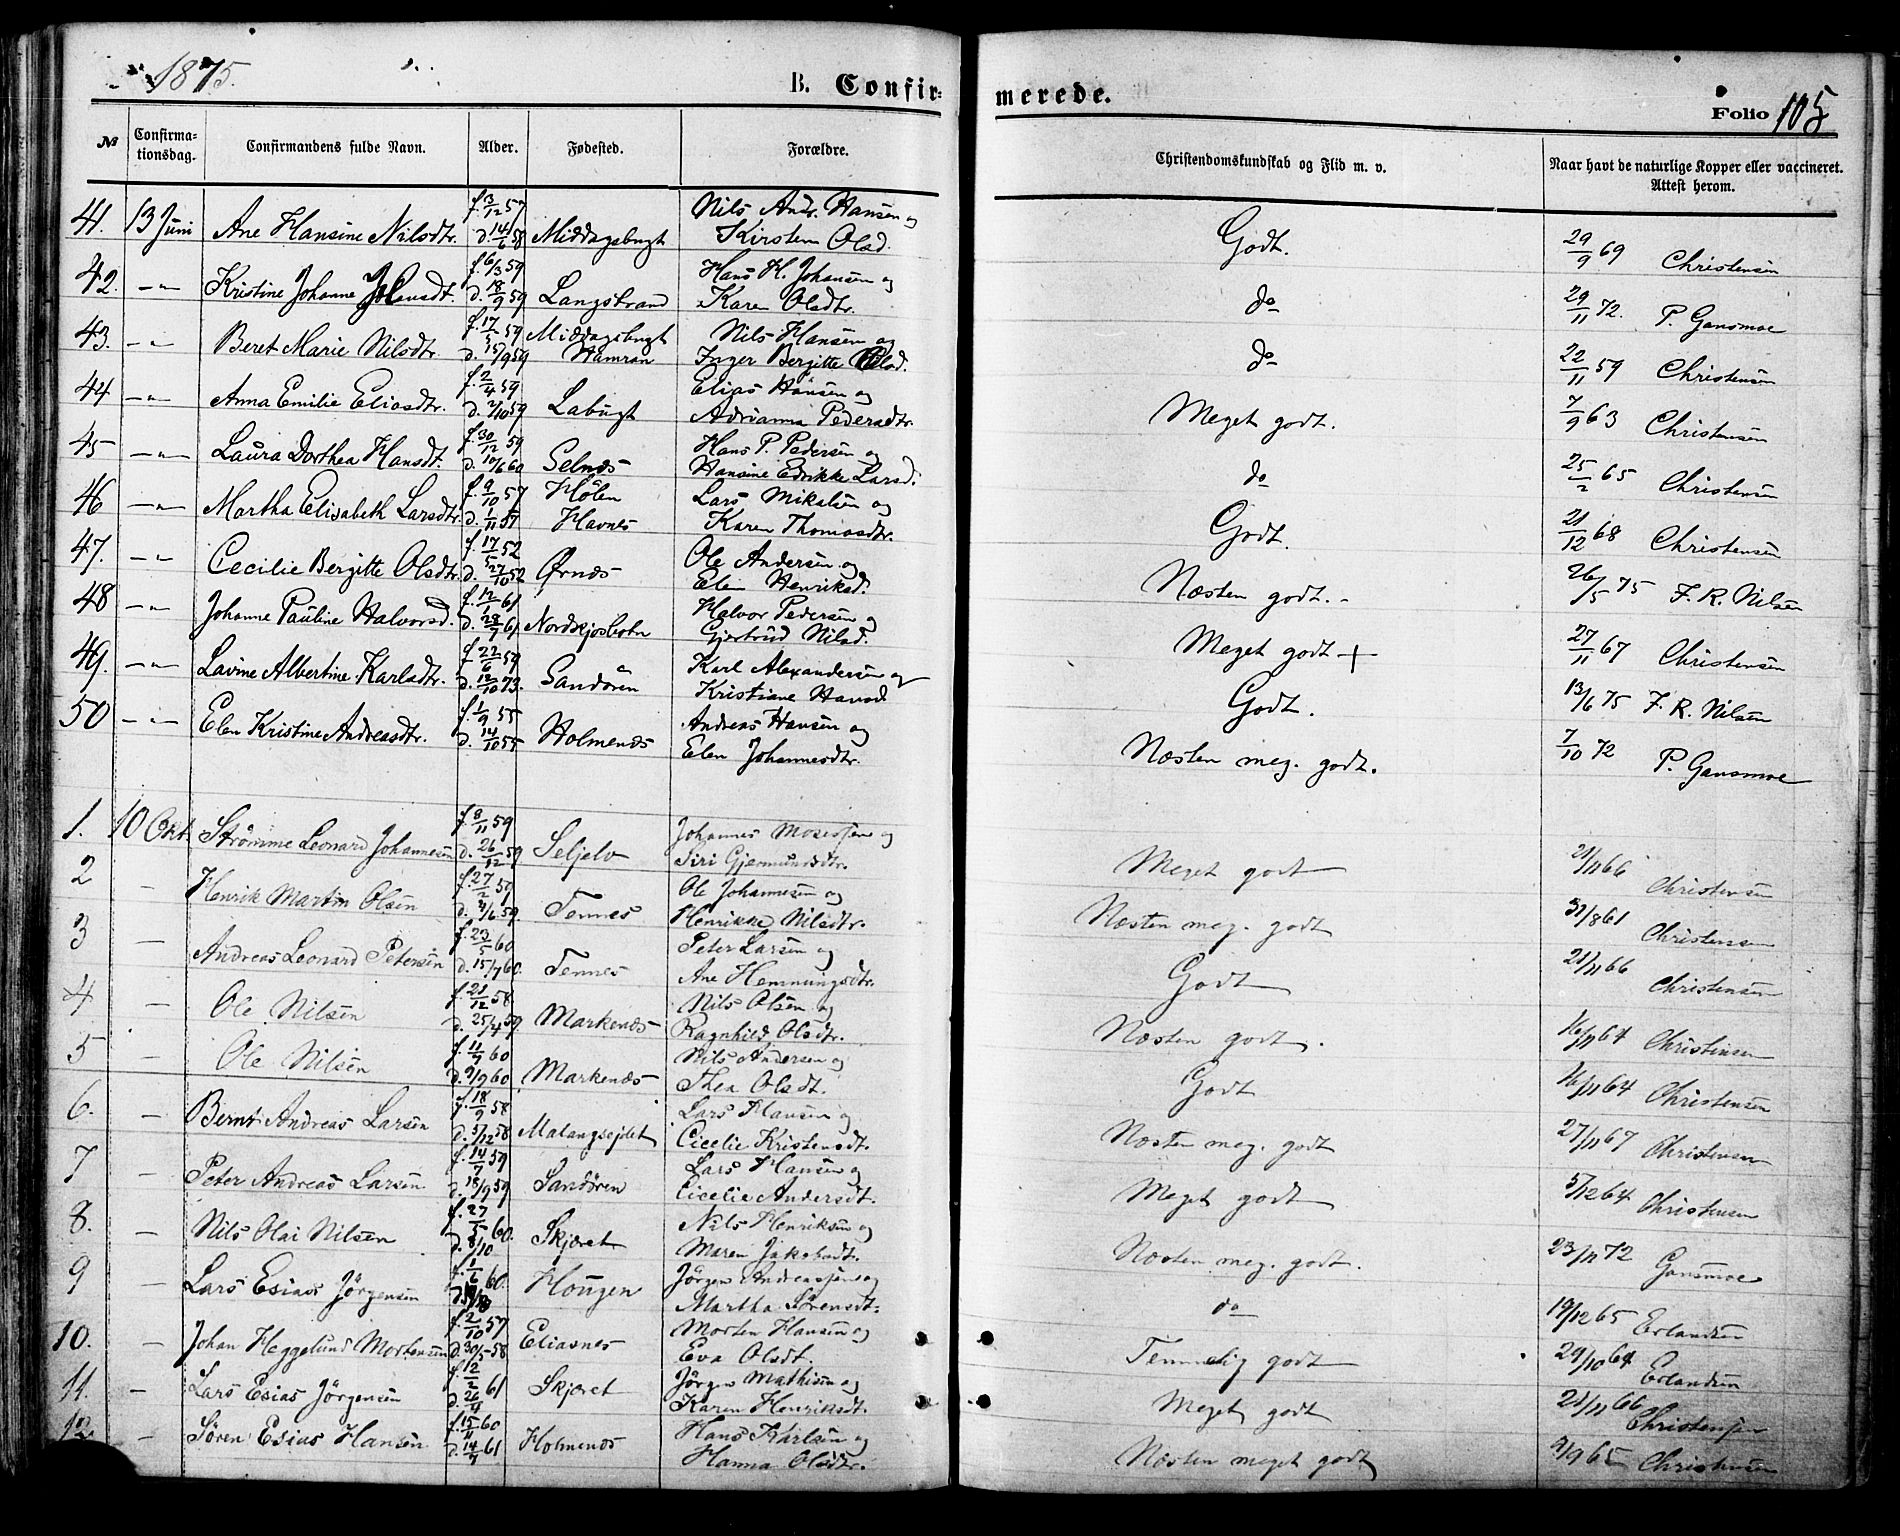 1875.
B. Confir-
merede.
Folio 105
No
Confirma-
tionsdag.
Confirmandens fulde Navn.
Alder.
Fødested.
Forældre.
Christendomskundskab og Flid m. v.
Naar havt de naturlige Kopper eller vaccineret.
Attest herom.
41. 13 Juni Ane Hansine Nilsdtr. f. 3/12 57 d. 14/6 58 Middagsbugt Nils Andr. Hansen og Kirsten Olsd. Godt. 29/9 69 Christensen
42. -"- Kristine Johanne f. 6/3 59 d. 18/9 59 Langstrand Hans H. Johansen og Karen Olsdtr. do 29/11 72. P. Gansmoe
43. -"- Beret Marie Nilsdtr. f. 17/5 59 d. 15/9 59 Middagsbugt Nils Hansen og Inger Bergitte Olsd. do 22/11 59 Christensen
44 -"- Anna Emilie Eliasdtr. f. 2/4 59 d. 2/10 59 Labugt Elias Hansen og Adrianna Pedersdtr. Meget godt. 7/9 63 Christensen
45 -"- Laura Dorthea Hansdt. f. 30/12 59 d. 10/6 60 Selnæs Hans P. Pedersen og Hansine Edrikke Larsd. do 25/2 65 Christensen
46 -"- Martha Elisabeth Larsdtr. f. 9/10 57 d. 1/11 57 Hølen Havnes Lars Mikalsen og Karen Thomasdtr. Godt. 21/12 68 Christensen
47. -"- Cecilie Bergitte Olsdtr. f. 17/5 52 d. 27/10 52 Ørnæs Ole Andersen og Elen Henriksd. Næsten godt. 26/5 75 F. R. Nilsen
48 -"- Johanne Pauline Halvorsd. f. 12/1 61 d. 28/7 61 Nordkjosbotn Halvor Pedersen og Gjertrud Nilsd. Meget godt + 27/11 67 Christensen
49. -"- Lavine Albertine Karlsdtr. f. 22/6 59 d. 12/10 73. Sandøren Karl Alexandersen og Kristiane Godt. 13/6 75 F. R. Nilsen
50 -"- Elen Kristine Andreasdtr. f. 1/9 55 d. 14/10 55 Holmenæs Andreas Hansen og Elen Johannesdtr. Næsten meg. godt. 7/10 72 P. Gansmoe
1. 10 Okt. Strømme Leonard Johannesen f. 8/11 59 d. 26/12 59 Seljelv Johannes Mosessen og Siri Gjermundsdtr. Meget godt 21/11 66 Christensen
2 - Henrik Martin Olsen f. 27/2 59 d. 59. Tennes Ole Johannesen og Henrikke Nilsdtr. Næsten meg. godt 31/8 61 Christensen
3 - Andreas Leonard Petersen f. 23/5 60 d. 15/7 60. Tennes Peter Larsen og Ane Hemmingsdtr. Godt 21/11 66 Christensen
4 - Ole Nilsen f. 21/12 58 d. 25/4 59 Markenæs Nils Olsen og Ragnhild Olsdtr. Næsten godt. 16/11 64 Christensen
5 - Ole Nilsen f. 11/7 60 d. 9/9 60 Markenæs Nils Andersen og Thea Olsdt. Godt 16/11 64 Christensen
6. - Bernt Andreas Larsen f. 18/9 58 d. 5/12 58 Malangsejdet Lars Hansen og Cicelie Kristensdt. Næsten meg. godt 27/11 67 Christensen
7 - Peter Andreas Larsen f. 14/7 59 d. 18/9 59 Sandøren Lars Hansen og Cicelie Andersdt. Meget godt 5/12 64 Christensen
8. - Nils Olai Nilsen f. 27/5 60. d. 8/10 Skjæret Nils Henriksen og Maren Jakobsdt. Næsten meg. godt. 23/11 72 Gansmoe
9 - Lars Esias Jörgensen f. 1/6 60. Hougen Jörgen Andreassen og Martha Sörensdt. do 19/12 65 Erlandsen
10. - Johan Heggelund Mortensen f. 2/10 57 d. 30/5 58 Eliasnes Morten Hansen og Eva Olsdt. Temmelig godt 29/10 64 Erlandsen
11. - Lars Esias Jörgensen f. 12/2 61 d. 26/4 Skjæret Jörgen Mathisen og Karen Henriksdt. Meget godt 21/11 66 Christensen
12 - Sören Esias Hansen f. 15/11 60 d. 14/7 61 Holmenæs Hans Karlsen og Hanna Olsdtr. Næsten meget godt 9/9 65 Christensen